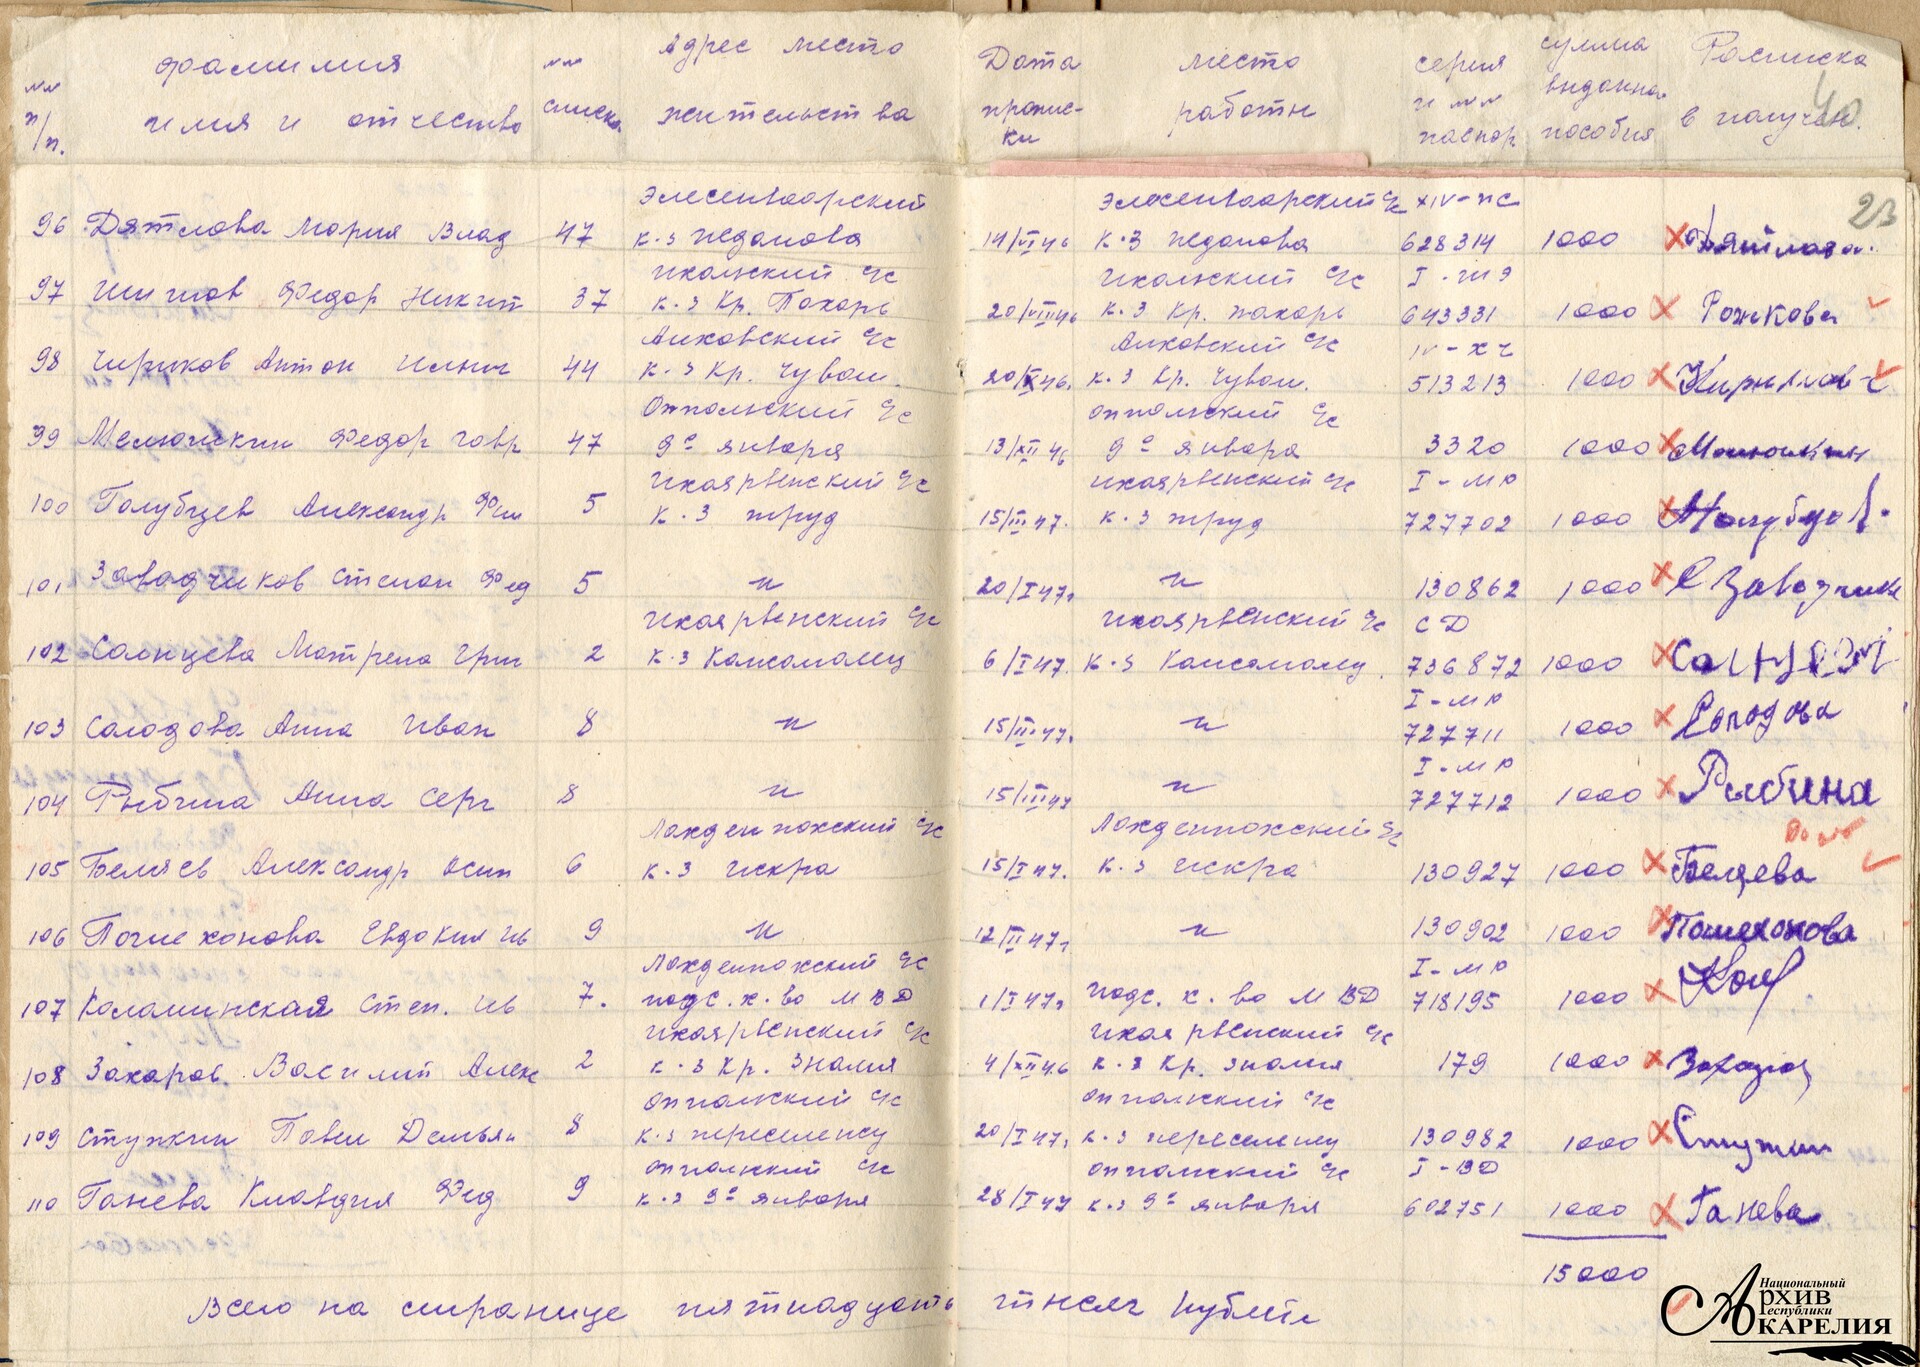 №№ п/п. фамилия имя и отчество №№ списка Адрес место жительства Дата пропис-ки место работы серия и №№ паспор. сумма выданна. пособия Расписка в получен.
40
23
Элисенваарский Элисенваарский с/с XIV-ПС
96 Дятлова Мария Влад 47 к-з Жданова 14/VI 46 к-з Жданова 628314 1000 Дятлова.
Ихальский с/с Ихальский с/с I-
97 Шишов Федор Никит 37 к-з Кр. Пахарь 20/VIII 46 к-з Кр. пахарь 643331 1000 Рожкова
с/с с/с IV-ХЧ
98 Чириков Антон Ильич 44 к-з Кр. Чуваш. 20/X 46. к-з Кр. Чуваш. 513213 1000
Оппольский с/с Оппольский с/с
99 Мелюшкин Федор Гавр 47 9е января 13/XII 46 9е января 3320 1000 Мелюшкин
Ихоярвенский с/с Ихоярвенский с/с I-МЮ
100 Голубцев Александр Фил 5 к-з труд 15/III 47. к-з труд 727702 1000 Голубцов
101 Завадчиков Степан Фед 5 " 20/I 47. " 130862 1000 С Завадчиков
Ихоярвенский с/с Ихоярвенский с/с СД
102 Солнцева Матрена Григ 2 к-з Комсомолец 6/I 47. к-з Комсомолец 736872 1000 Солнцева
I-МЮ
103 Солодова Анна Иван 8 " 15/II 47. " 727711 1000 Солодова
I-МЮ
104 Рыбина Анна Серг 8 " 15/III 47 " 727712 1000 Рыбина
Лахденпохский с/с Лахденпохский с/с
105 Беляев Александр Осип 6 к-з Искра 15/I 47. к-з Искра 130927 1000 Беляева
106 Пошехонова Евдокия Ив 9 " 12/II 47. " 130902 1000 Пошехонова
Лахденпохский с/с I-МЮ
107 Каламинская Степ. Ив 7. подс. х-во МВД 1/I 47. подс. х-во МВД 718195 1000
Ихоярвенский с/с Ихоярвенский с/с
108 Захаров Василий Алек 2 к-з Кр. Знамя 4/XII 46 к-з Кр. Знамя 179 1000 Захаров
Оппольский с/с Оппольский с/с
109 Ступкин Павел Демьян 8 к-з переселенец 20/I 47. к-з переселенец 130982 1000 Ступкин
Оппольский с/с Оппольский с/с I-ВД
110 Ганева Клавдия Фед 9 к-з 9е января 28/I 47 к-з 9е января 602751 1000 Ганева
15000
Всего на странице пятнадцать тысяч рублей
Национальный
Архив
Республики
Карелия